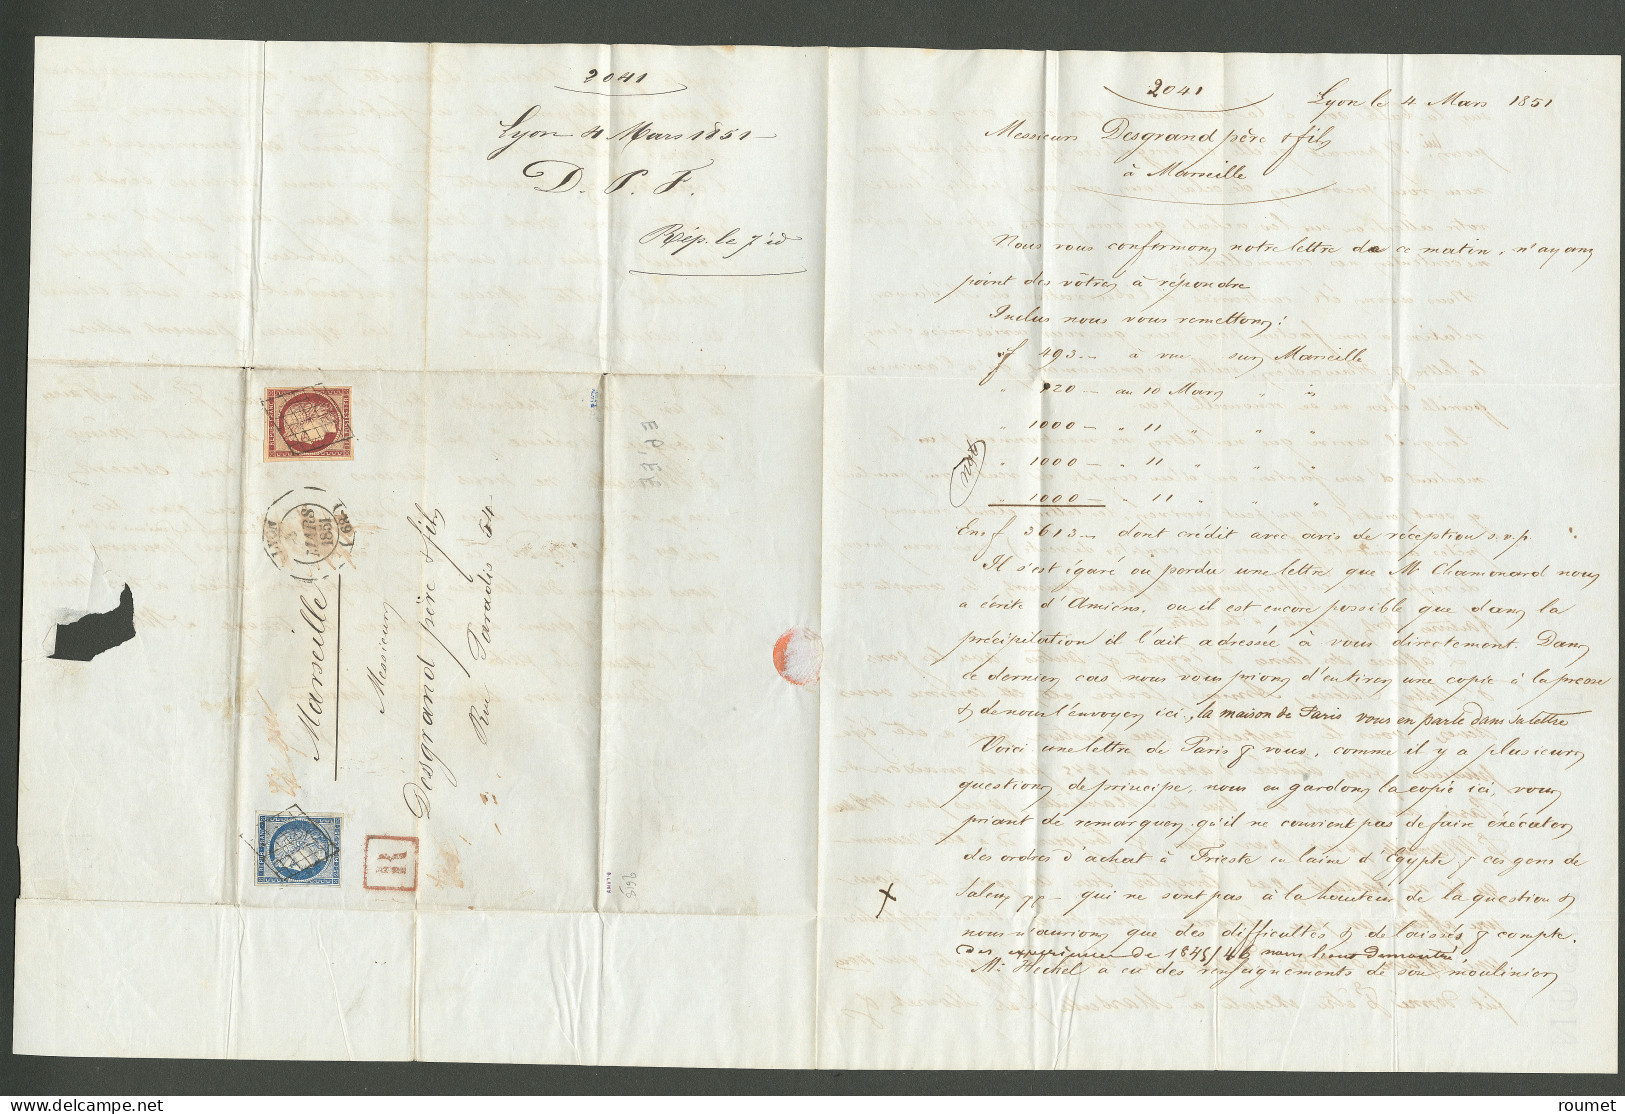 2041
Lyon 4 Mars 1851
D. P. F.
Rép. le 7 id
REPUB. FRANC.
LYON
MARS
1851
(68)
Marseille
Messieurs
Desgrand père & fils
Rue Paradis 54
REPUB. FRANC.
R
2041
Lyon le 4 Mars 1851
Messieurs Desgrand père & fils
à Marseille
Nous vous confirmons notre lettre de ce matin, n'ayant
point des vôtres à répondre
Inclus nous vous remettons:
f 493 — à vue sur Marseille
" 120 — au 10 Mars " is
" 1000 — " 11 " " "
" 1000 — " 11 " " "
" 1000 — " 11 " " "
Ens f 3613 — dont crédit avec avis de réception s.v.p.
Il s'est égaré ou perdu une lettre que Mr Chamonard nous
a écrite d'Amiens, ou il est encore possible que dans la
précipitation il l'ait adressée à vous directement. Dans
ce dernier cas nous vous prions d'en tirer une copie à la presse
& de nous l'envoyer ici, la maison de Paris vous en parle dans sa lettre
Voici une lettre de Paris p vous, comme il y a plusieurs
questions de principe, nous en gardons la copie ici, vous
priant de remarquer qu'il ne convient pas de faire exécuter
des ordres d'achat à Trieste en laine d'Egypte p ces gens de
qui ne sont pas à la hauteur de la question &
nous n'aurions que des difficultés & de laissés p compte.
des expériences de 1845/46 nous l'ont démontré
Mr Hechel a eu des renseignements de son moulinier
roumet